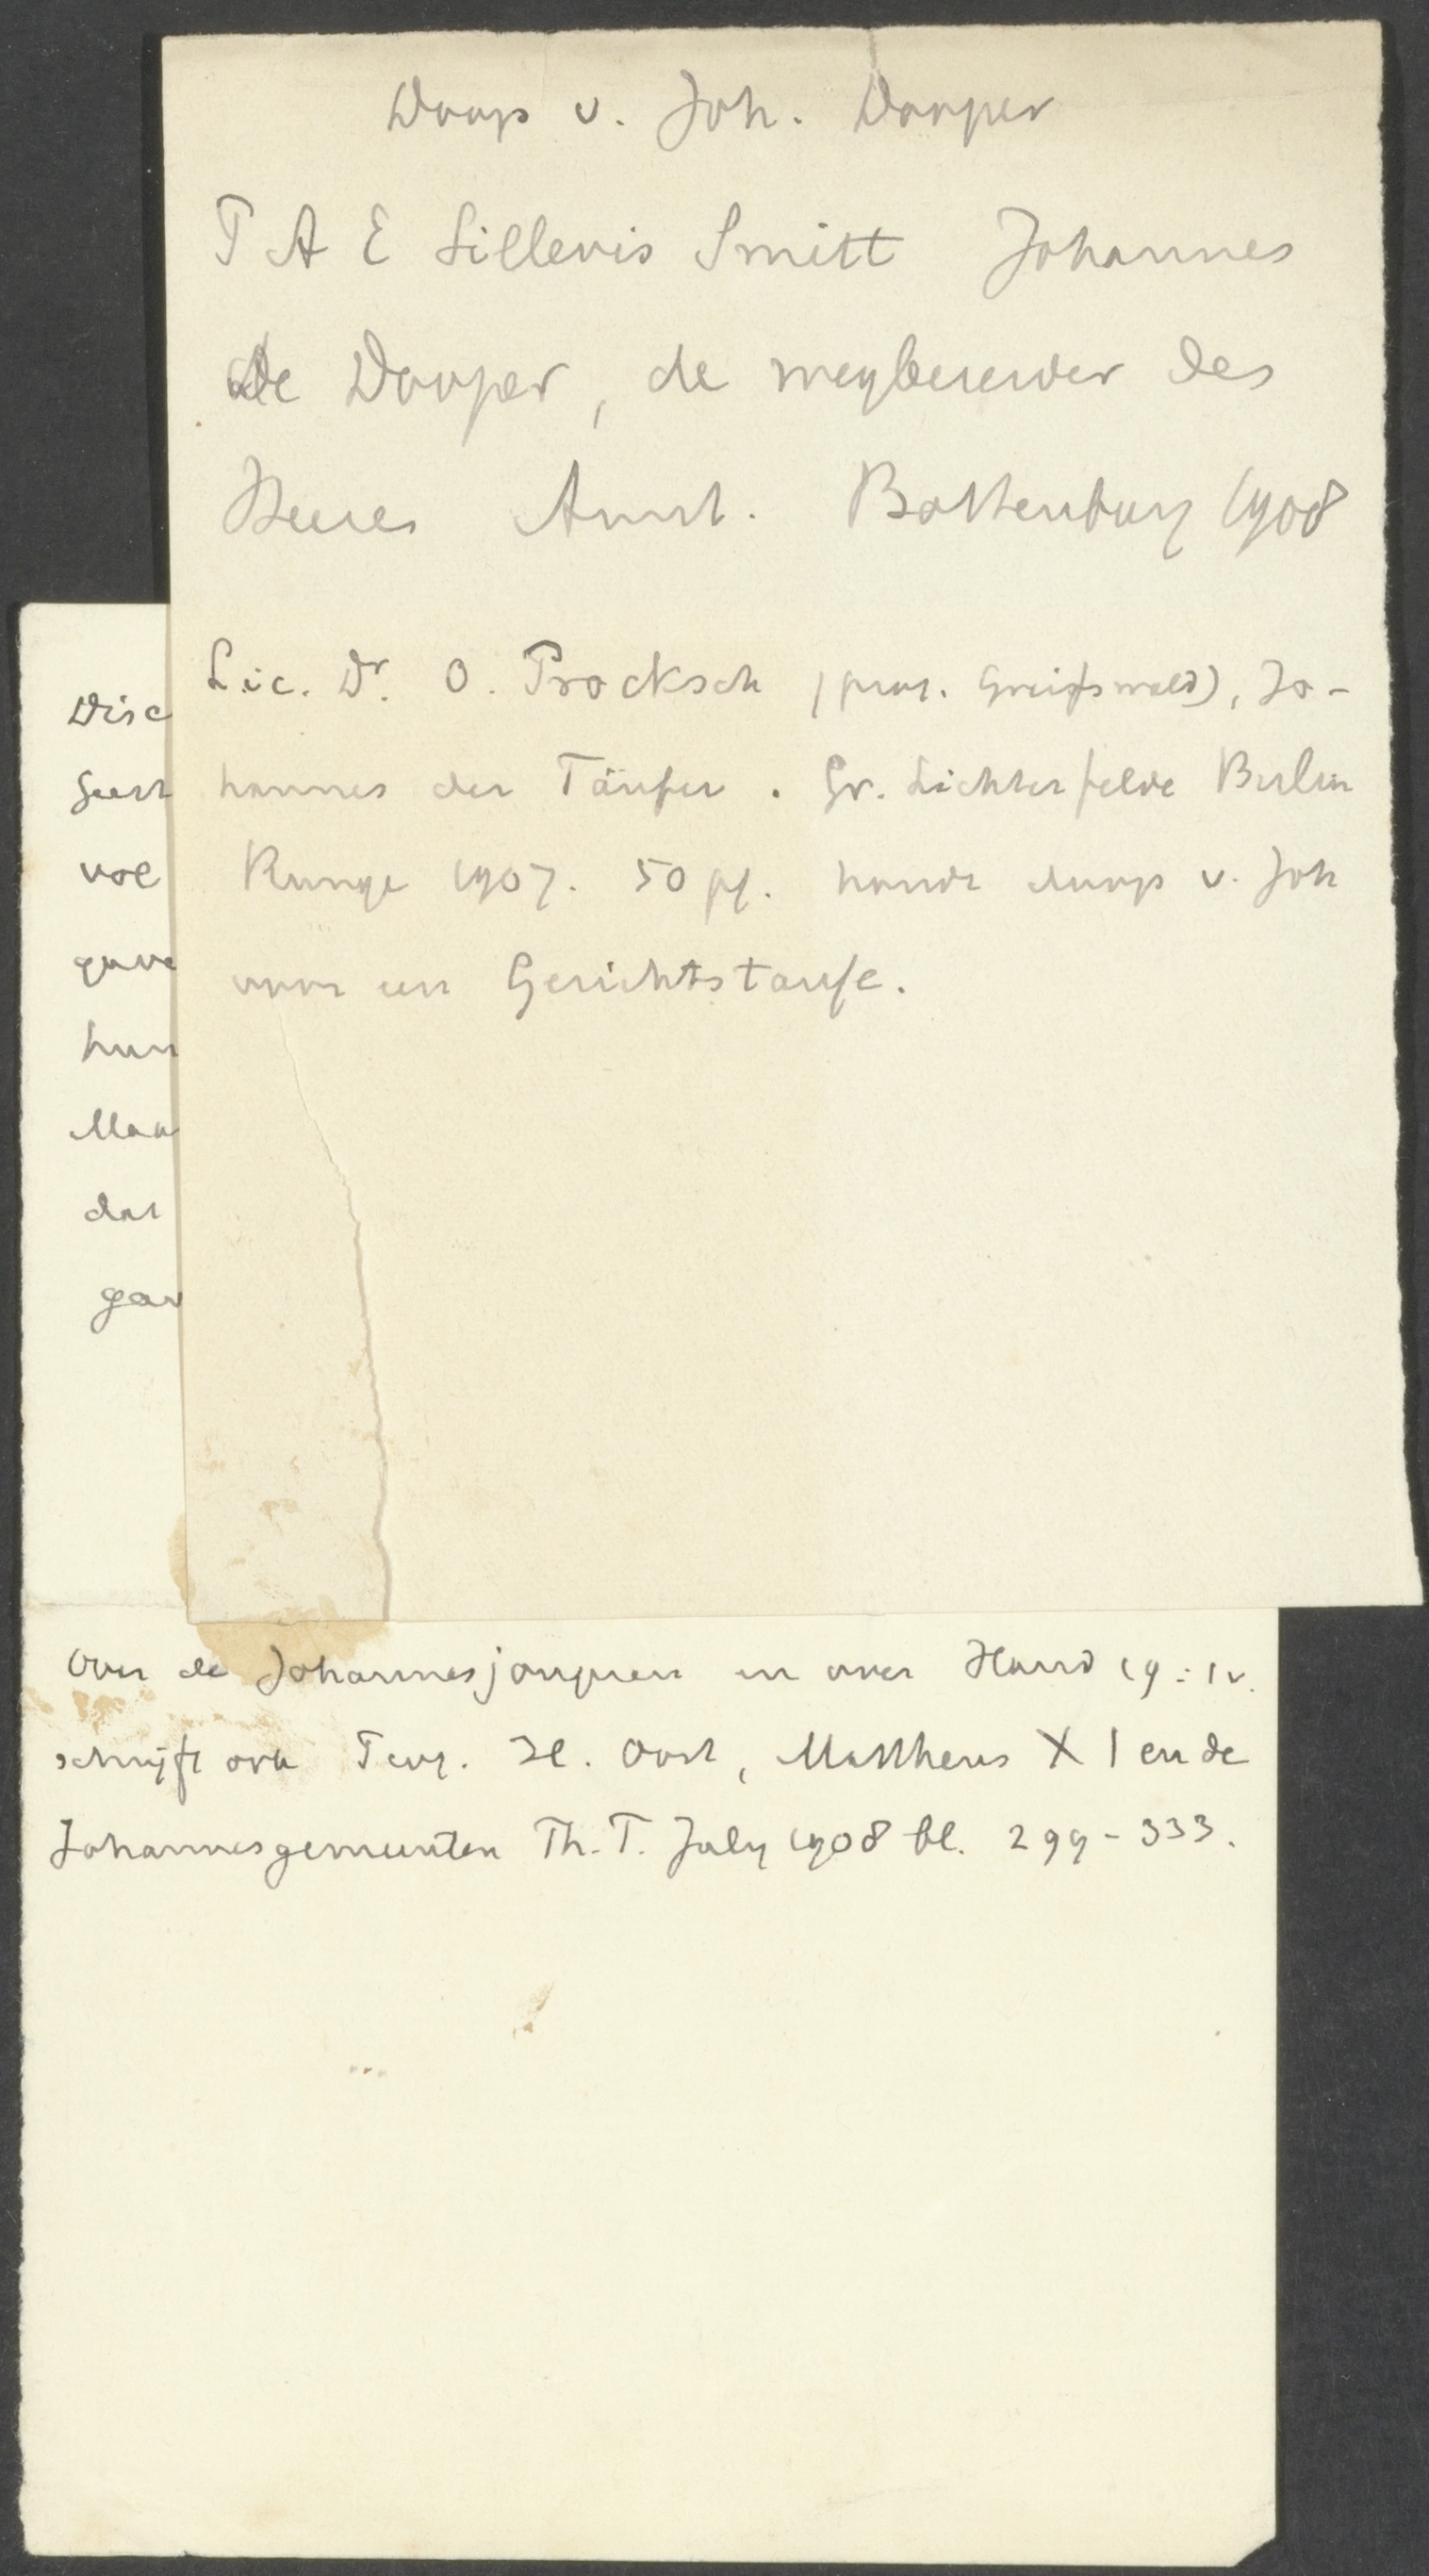 Doop v. Joh. Dooper
T A E Sillevis Smitt Johannes
de Dooper, de wegbereider des
Heeren Amst. Bottenburg 1908
Lic. Dr. O. Procksch (prof. Greifswald), Jo-
hannes der Täufer. Gr. Lichterfelde Berlin
Runge 1907. 50 pf. houdt doop v. Joh
voor een Gerichtstaufe.
Disc
Geest
vol
gave
hun
Maa
dat
gav
Over de Johannesjongeren en over Hand 19:1v.
schrijft ook Tj. H. Oort, Mattheus XI en de
Johannesgemeenten Th. T. July 1908 bl. 299-333.